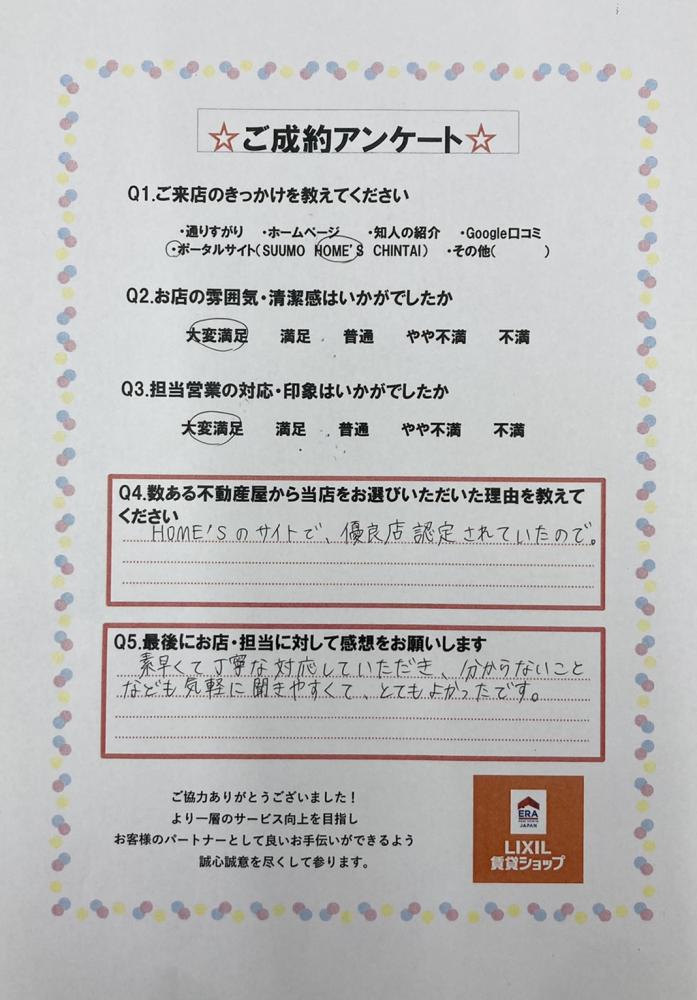 ☆ご成約アンケート☆
Q1.ご来店のきっかけを教えてください
・通りすがり ・ホームページ ・知人の紹介 ・Google口コミ
・ポータルサイト(SUUMO HOME'S CHINTAI) ・その他( )
Q2.お店の雰囲気・清潔感はいかがでしたか
大変満足 満足 普通 やや不満 不満
Q3.担当営業の対応・印象はいかがでしたか
大変満足 満足 普通 やや不満 不満
Q4.数ある不動産屋から当店をお選びいただいた理由を教えて
ください
HOME'Sのサイトで、優良店認定されていたので。
Q5.最後にお店・担当に対して感想をお願いします
素早くて丁寧な対応していただき、分からないこと
なども気軽に聞きやすくて、とてもよかったです。
ご協力ありがとうございました！
より一層のサービス向上を目指し
お客様のパートナーとして良いお手伝いができるよう
誠心誠意を尽くして参ります。
ERA
JAPAN
LIXIL
賃貸ショップ